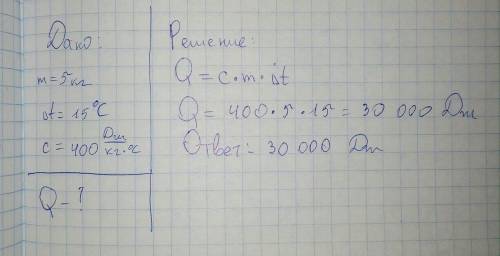 Дано:
m = 5 кг
Δt = 15°C
c = 400 Дж/кг·°C
Q - ?
Решение:
Q = c·m·Δt
Q = 400·5·15 = 30 000 Дж
Ответ: 30 000 Дж